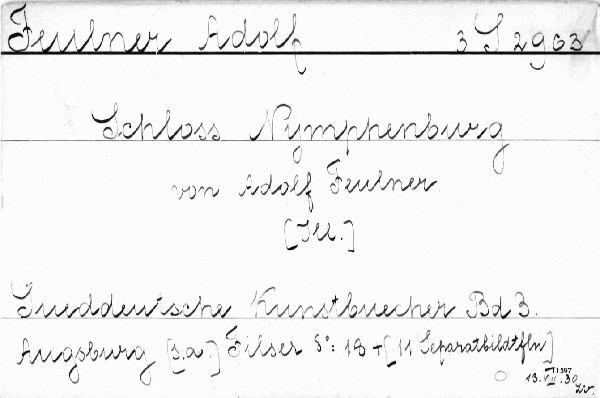 Feulner Adolf 3 S 2963
Schloss Nymphenburg
von Adolf Feulner
[Ill.]
Sueddeutsche Kunstbuecher Bd 3.
Augsburg [s.a.] Filser 8°: 18 + [11 Separatbildtfln]
T1397
13. VII. 30